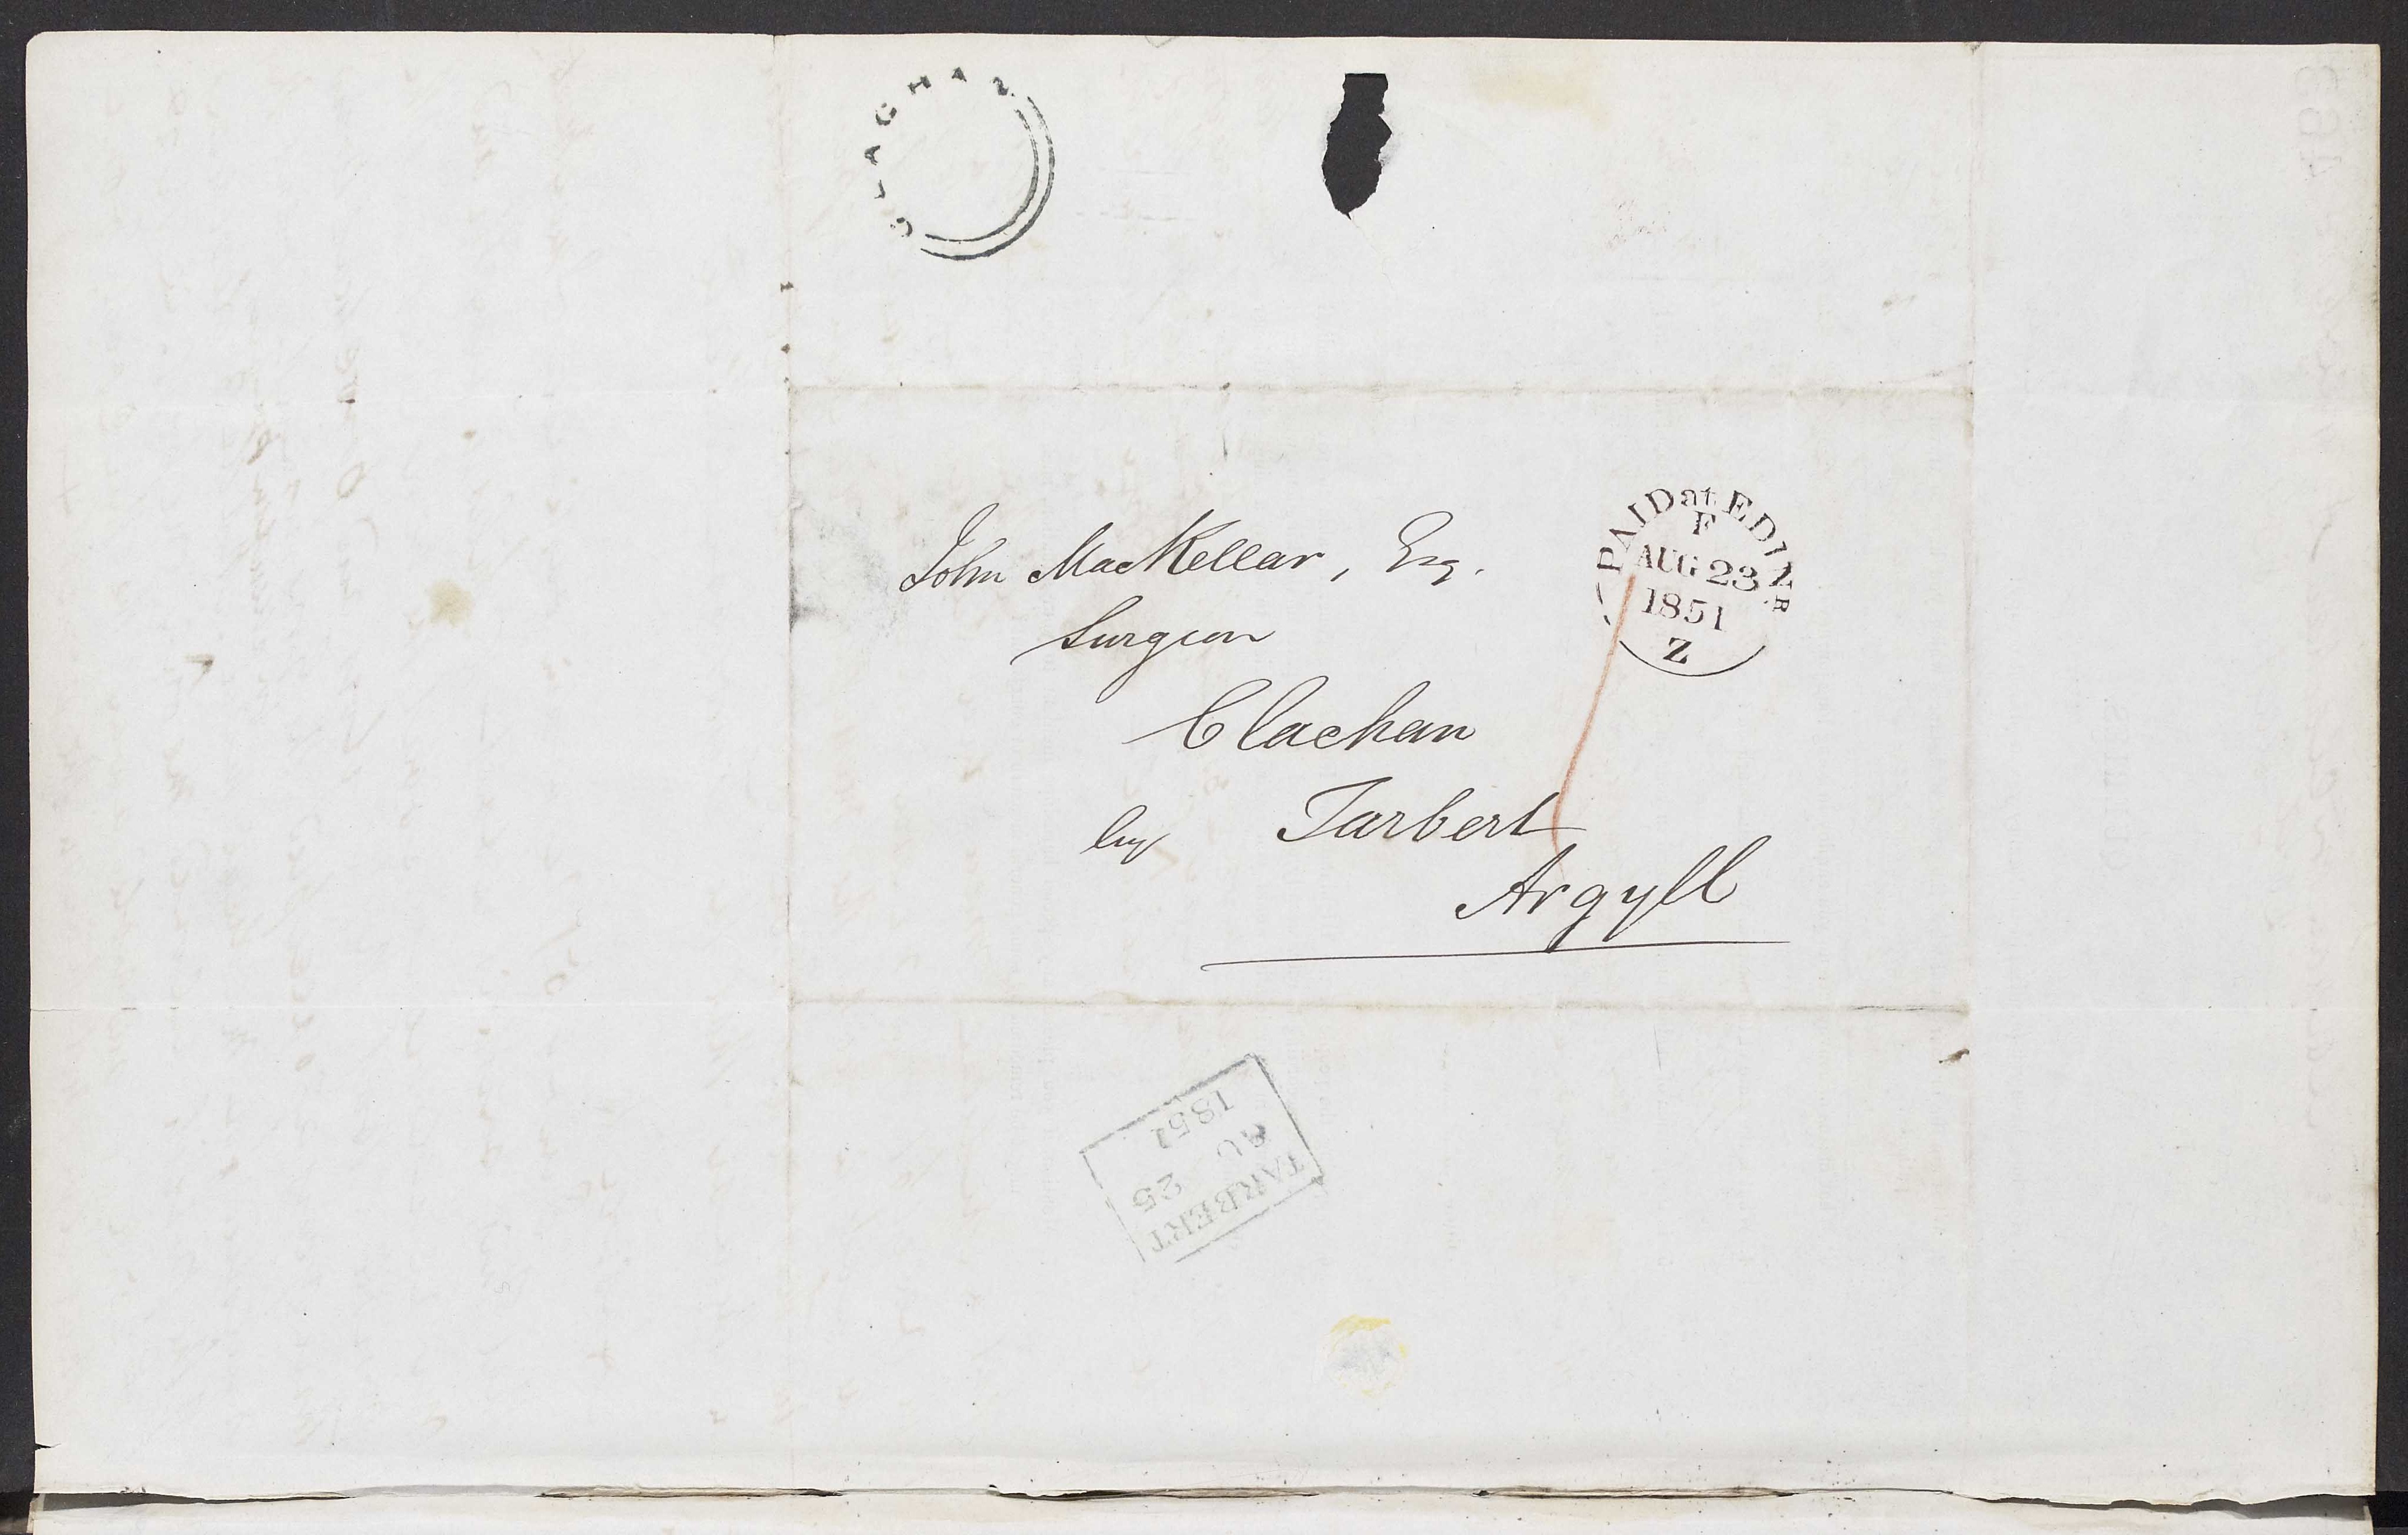 CLACHAN
PAID at EDINR
F
AUG 23
1851
Z
John MacKellar, Esq.
Surgeon
Clachan
by Tarbert
Argyll
TARBERT
AU 25
1851